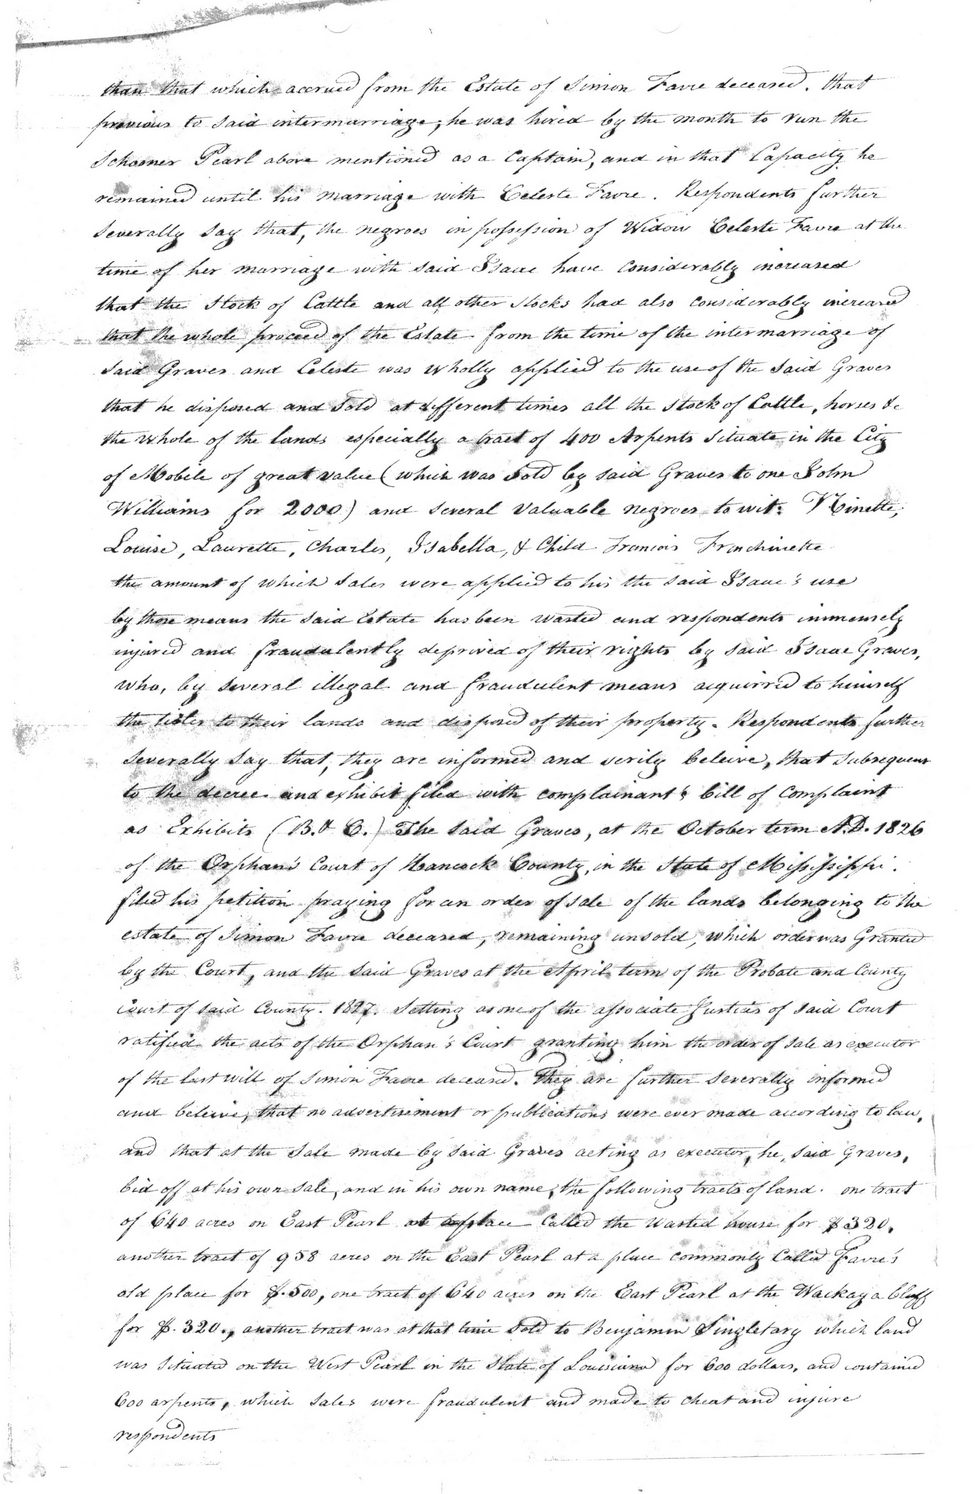 than that which accrued from the Estate of Simon Favre deceased. that
previous to said intermarriage, he was hired by the month to run the
Schooner Pearl above mentioned as a Captain, and in that Capacity he
remained until his marriage with Celeste Favre. Respondents further
severally say that, the negroes in possession of Widow Celeste Favre at the
time of her marriage with said Isaac have considerably increased
that the Stock of Cattle and all other stocks had also considerably increased
that the whole proceed of the Estate from the time of the intermarriage of
said Graves and Celeste was wholly applied to the use of the said Graves
that he disposed and sold at different times all the stock of Cattle, horses &c
the whole of the lands especially a tract of 400 Arpents situate in the City
of Mobile of great value (which was sold by said Graves to one John
Williams for 2000) and several valuable negroes to wit: Ninette,
Louise, Laurette, Charles, Isabella, & Child Francois Frenchinette
the amount of which sales were applied to his the said Isaac's use
by those means the said Estate has been wasted and respondents immensely
injured and fraudulently deprived of their rights by said Isaac Graves,
who, by several illegal and fraudulent means acquirred to himself
the titles to their lands and disposed of their property. Respondents further
severally say that, they are informed and verily beleive, that subsequent
to the decree and exhibit filed with complainant's bill of Complaint
as Exhibits (B. & C.) The said Graves, at the October term A.D. 1826
of the Orphan's Court of Hancock County, in the State of Mississippi.
filed his petition praying for an order of sale of the lands belonging to the
estate of Simon Favre deceased, remaining unsold, which order was Granted
by the Court, and the said Graves at the April term of the Probate and County
Court of said County. 1827. Setting as one of the associate Justices of said Court
ratified the acts of the Orphan's Court granting him the order of sale as executor
of the last will of Simon Favre deceased. They are further severally informed
and beleive, that no advertisement or publications were ever made according to law,
and that at the sale made by said Graves acting as executor, he, said Graves,
bid off at his own sale, and in his own name, the following tracts of land. one tract
of 640 acres on East Pearl at a place Called the Wasted house for $320.
another tract of 958 acres on the East Pearl at a place commonly Called Favre's
old place for $.500, one tract of 640 acres on the East Pearl at the Wackaya bluff
for $.320., another tract was at that time sold to Benjamin Singletary which land
was situated on the West Pearl in the State of Louisiana for 600 dollars, and contained
600 arpents, which sales were fraudulent and made to cheat and injure
respondents